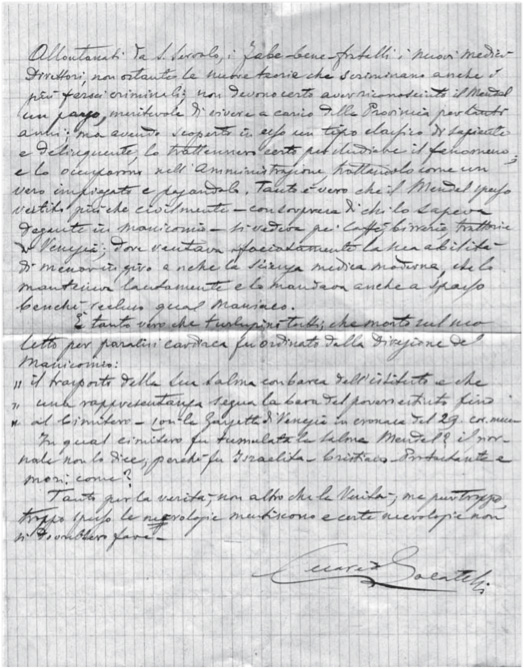 Allontanati da S. Servolo, i Fabe-bene-fratelli, i nuovi medici
Direttori, non ostante le nuove teorie che scriminano anche i
più feroci criminali; non devono certo aver riconosciuto il Mendel
un pazzo, meritevole di vivere a carico della Provincia per tanti
anni; ma avendo scoperto in esso un tipo classico di sapiente
e delinquente, lo trattennero certo per studiare il fenomeno,
e lo occuparono nell'Amministrazione, trattandolo come un
vero impiegato e pagandolo. Tanto è vero che il Mendel spesso
vestito più che civilmente - con sorpresa di chi lo sapeva
degente in manicomio - si vedeva pei Caffè, birrarie, trattorie
di Venezia; dove vantava sfacciatamente la sua abilità
di menar in giro anche la scienza medica moderna, che lo
manteneva lautamente e lo mandava anche a spasso
benchè recluso qual Maniaco.
È tanto vero che turlupinò tutti, che morto sul suo
letto per paralisi cardiaca fu ordinato dalla Direzione del
Manicomio:
" il trasporto della sua salma con barca dell'istituto e che
" una rappresentanza segua la bara del povero estinto fino
" al Cimitero - così la Gazzetta di Venezia in cronaca del 29 cor. mese
In qual cimitero fu tumulata la salma Mendel? il gior-
nale non lo dice, perchè fu Israelita - Cristiano - Protestante e
morì, come?
Tanto per la verità, non altro che la Verità -, ma purtroppo,
troppo spesso le necrologie mentiscono e certe necrologie non
si dovrebbero fare -
Cesare Locatelli